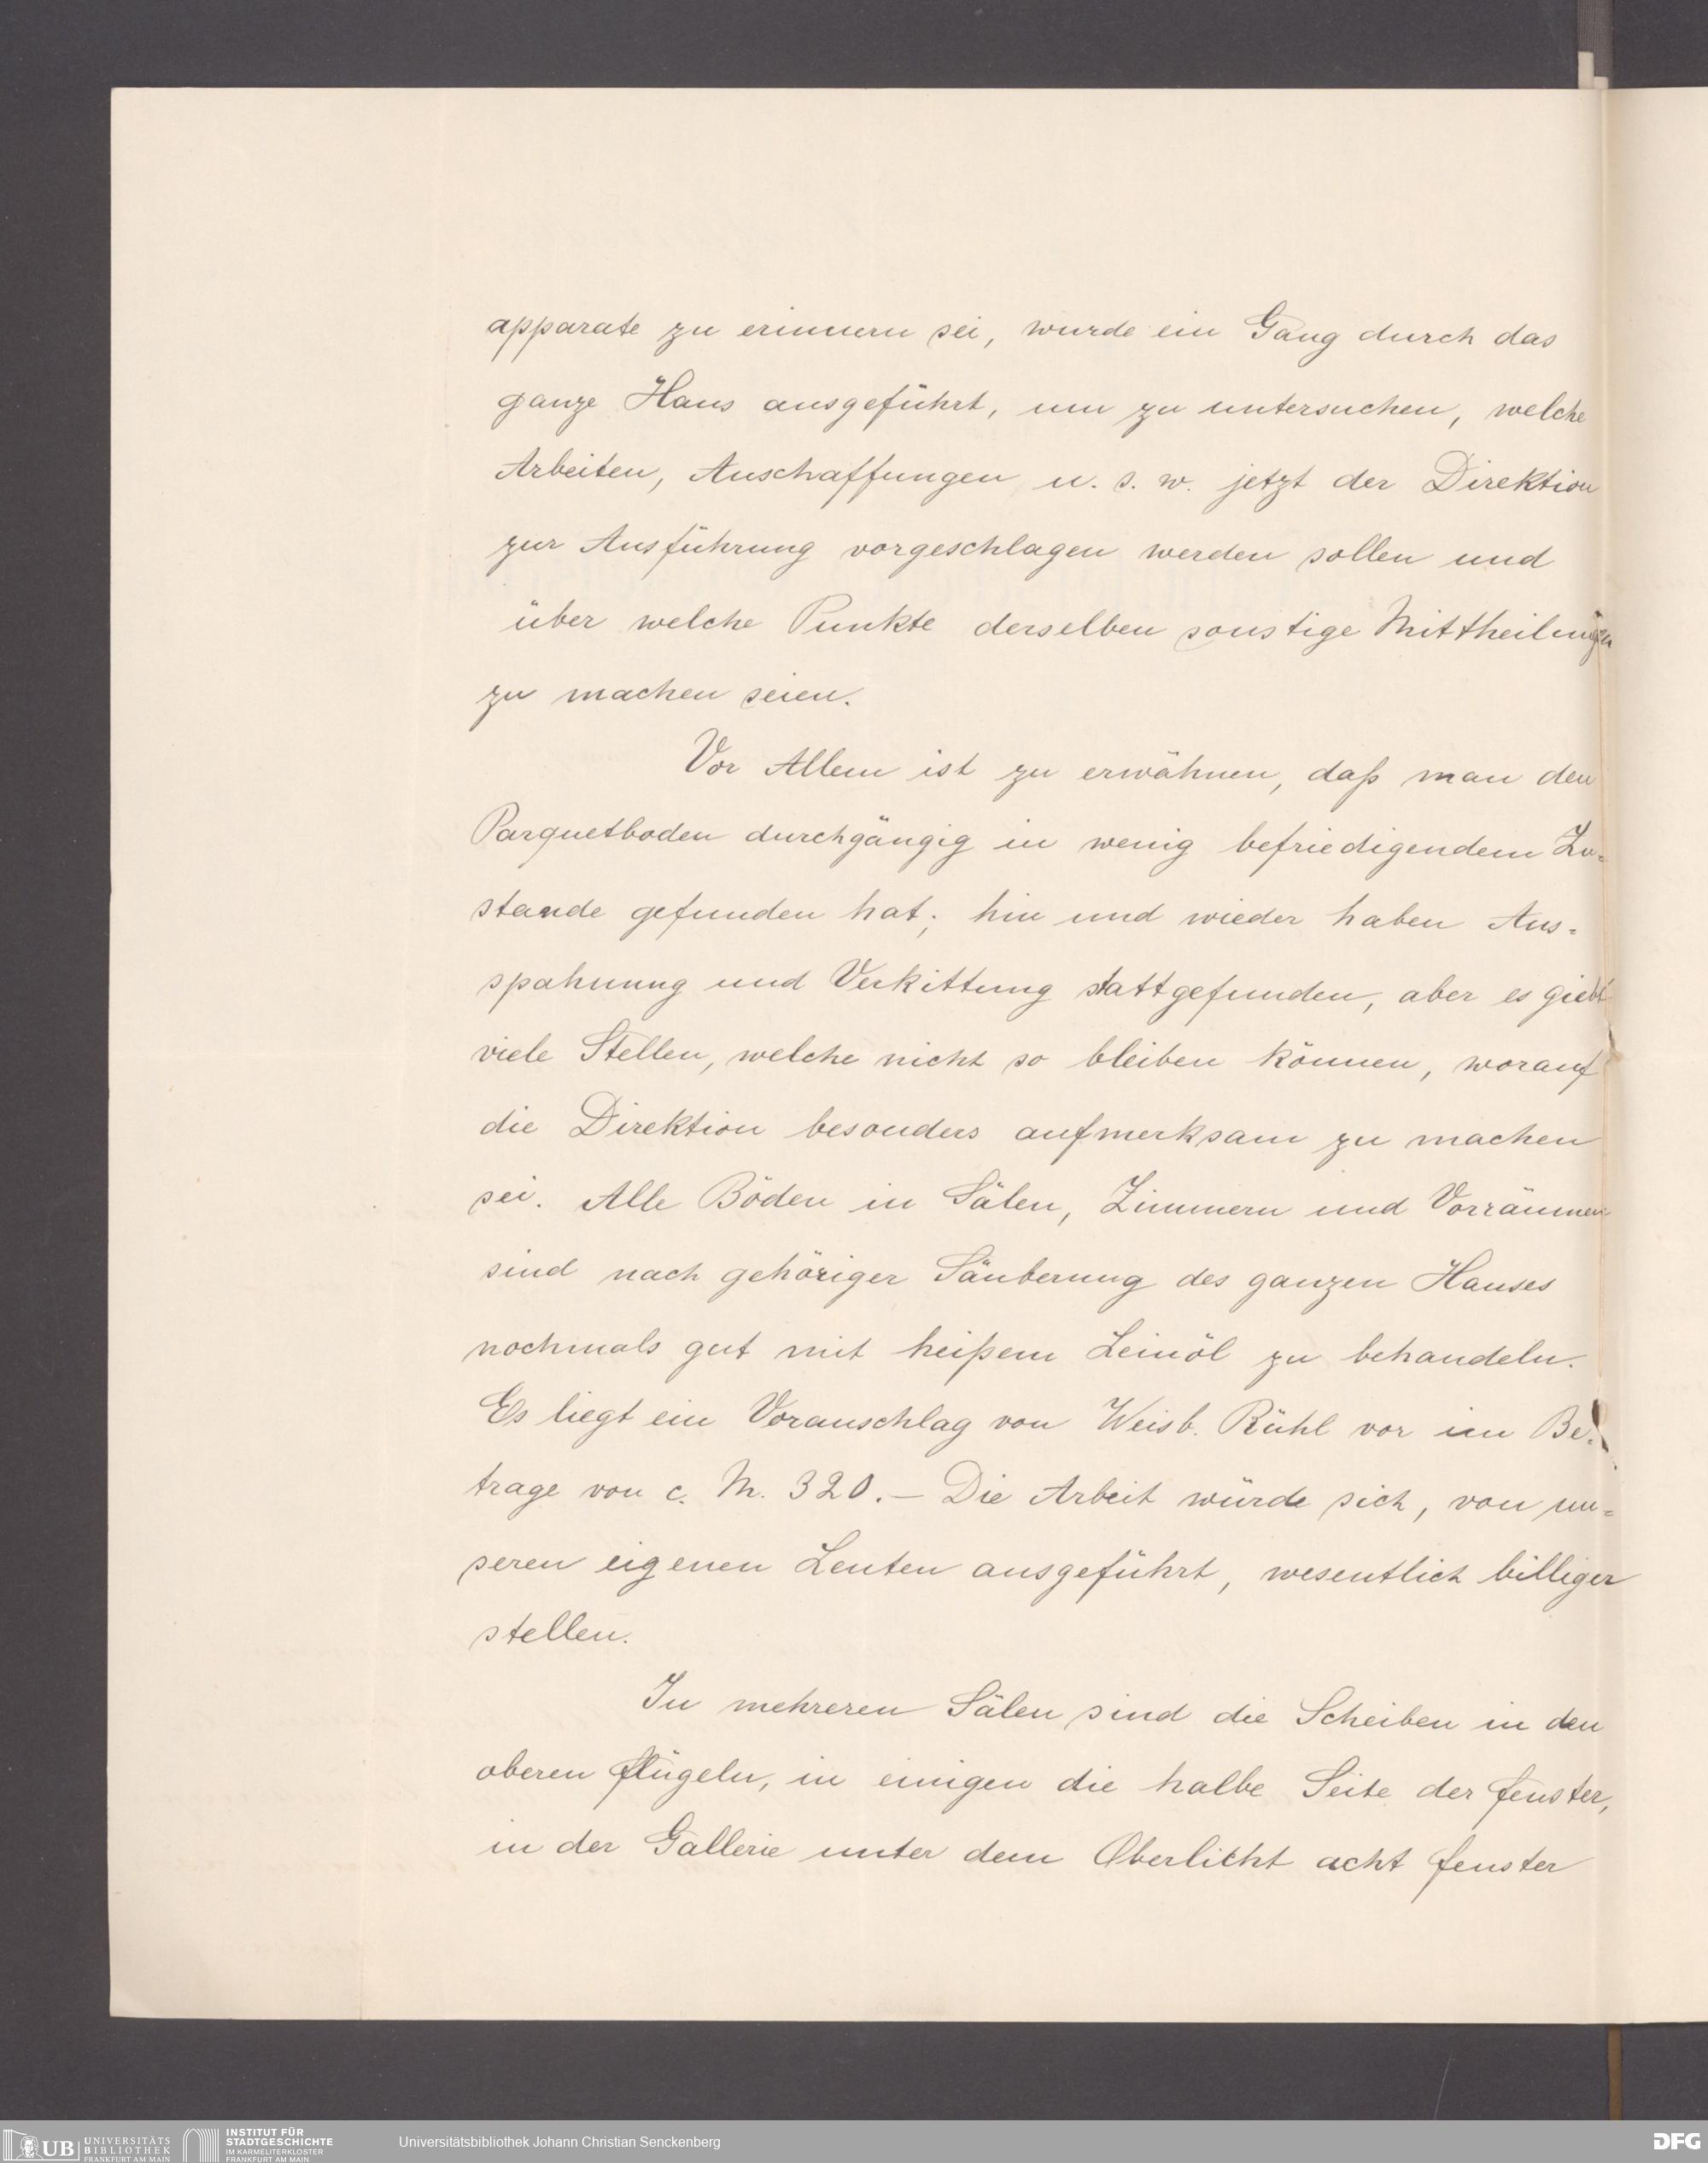 apparate zu erinnern sei, wurde ein Gang durch das
ganze Haus ausgeführt, um zu untersuchen, welche
Arbeiten, Anschaffungen u. s. w. jetzt der Direktion
zur Ausführung vorgeschlagen werden sollen und
über welche Punkte derselben sonstige Mittheilungen
zu machen seien.
Vor Allem ist zu erwähnen, daß man den
Parquetboden durchgängig in wenig befriedigendem Zu=
stande gefunden hat; hin und wieder haben Aus=
spahnung und Verkittung stattgefunden, aber es giebt
viele Stellen, welche nicht so bleiben können, worauf
die Direktion besonders aufmerksam zu machen
sei. Alle Böden in Sälen, Zimmern und Vorräumen
sind nach gehöriger Säuberung des ganzen Hauses
nochmals gut mit heißem Leinöl zu behandeln.
Es liegt ein Voranschlag von Weisb. Rühl vor im Be=
trage von c. M. 320.— Die Arbeit würde sich, von un=
seren eigenen Leuten ausgeführt, wesentlich billiger
stellen.
In mehreren Sälen sind die Scheiben in den
oberen Flügeln, in einigen die halbe Seite der Fenster,
in der Gallerie unter dem Oberlicht acht Fenster
UB UNIVERSITÄTS BIBLIOTHEK FRANKFURT AM MAIN
INSTITUT FÜR STADTGESCHICHTE IM KARMELITERKLOSTER FRANKFURT AM MAIN
Universitätsbibliothek Johann Christian Senckenberg
DFG